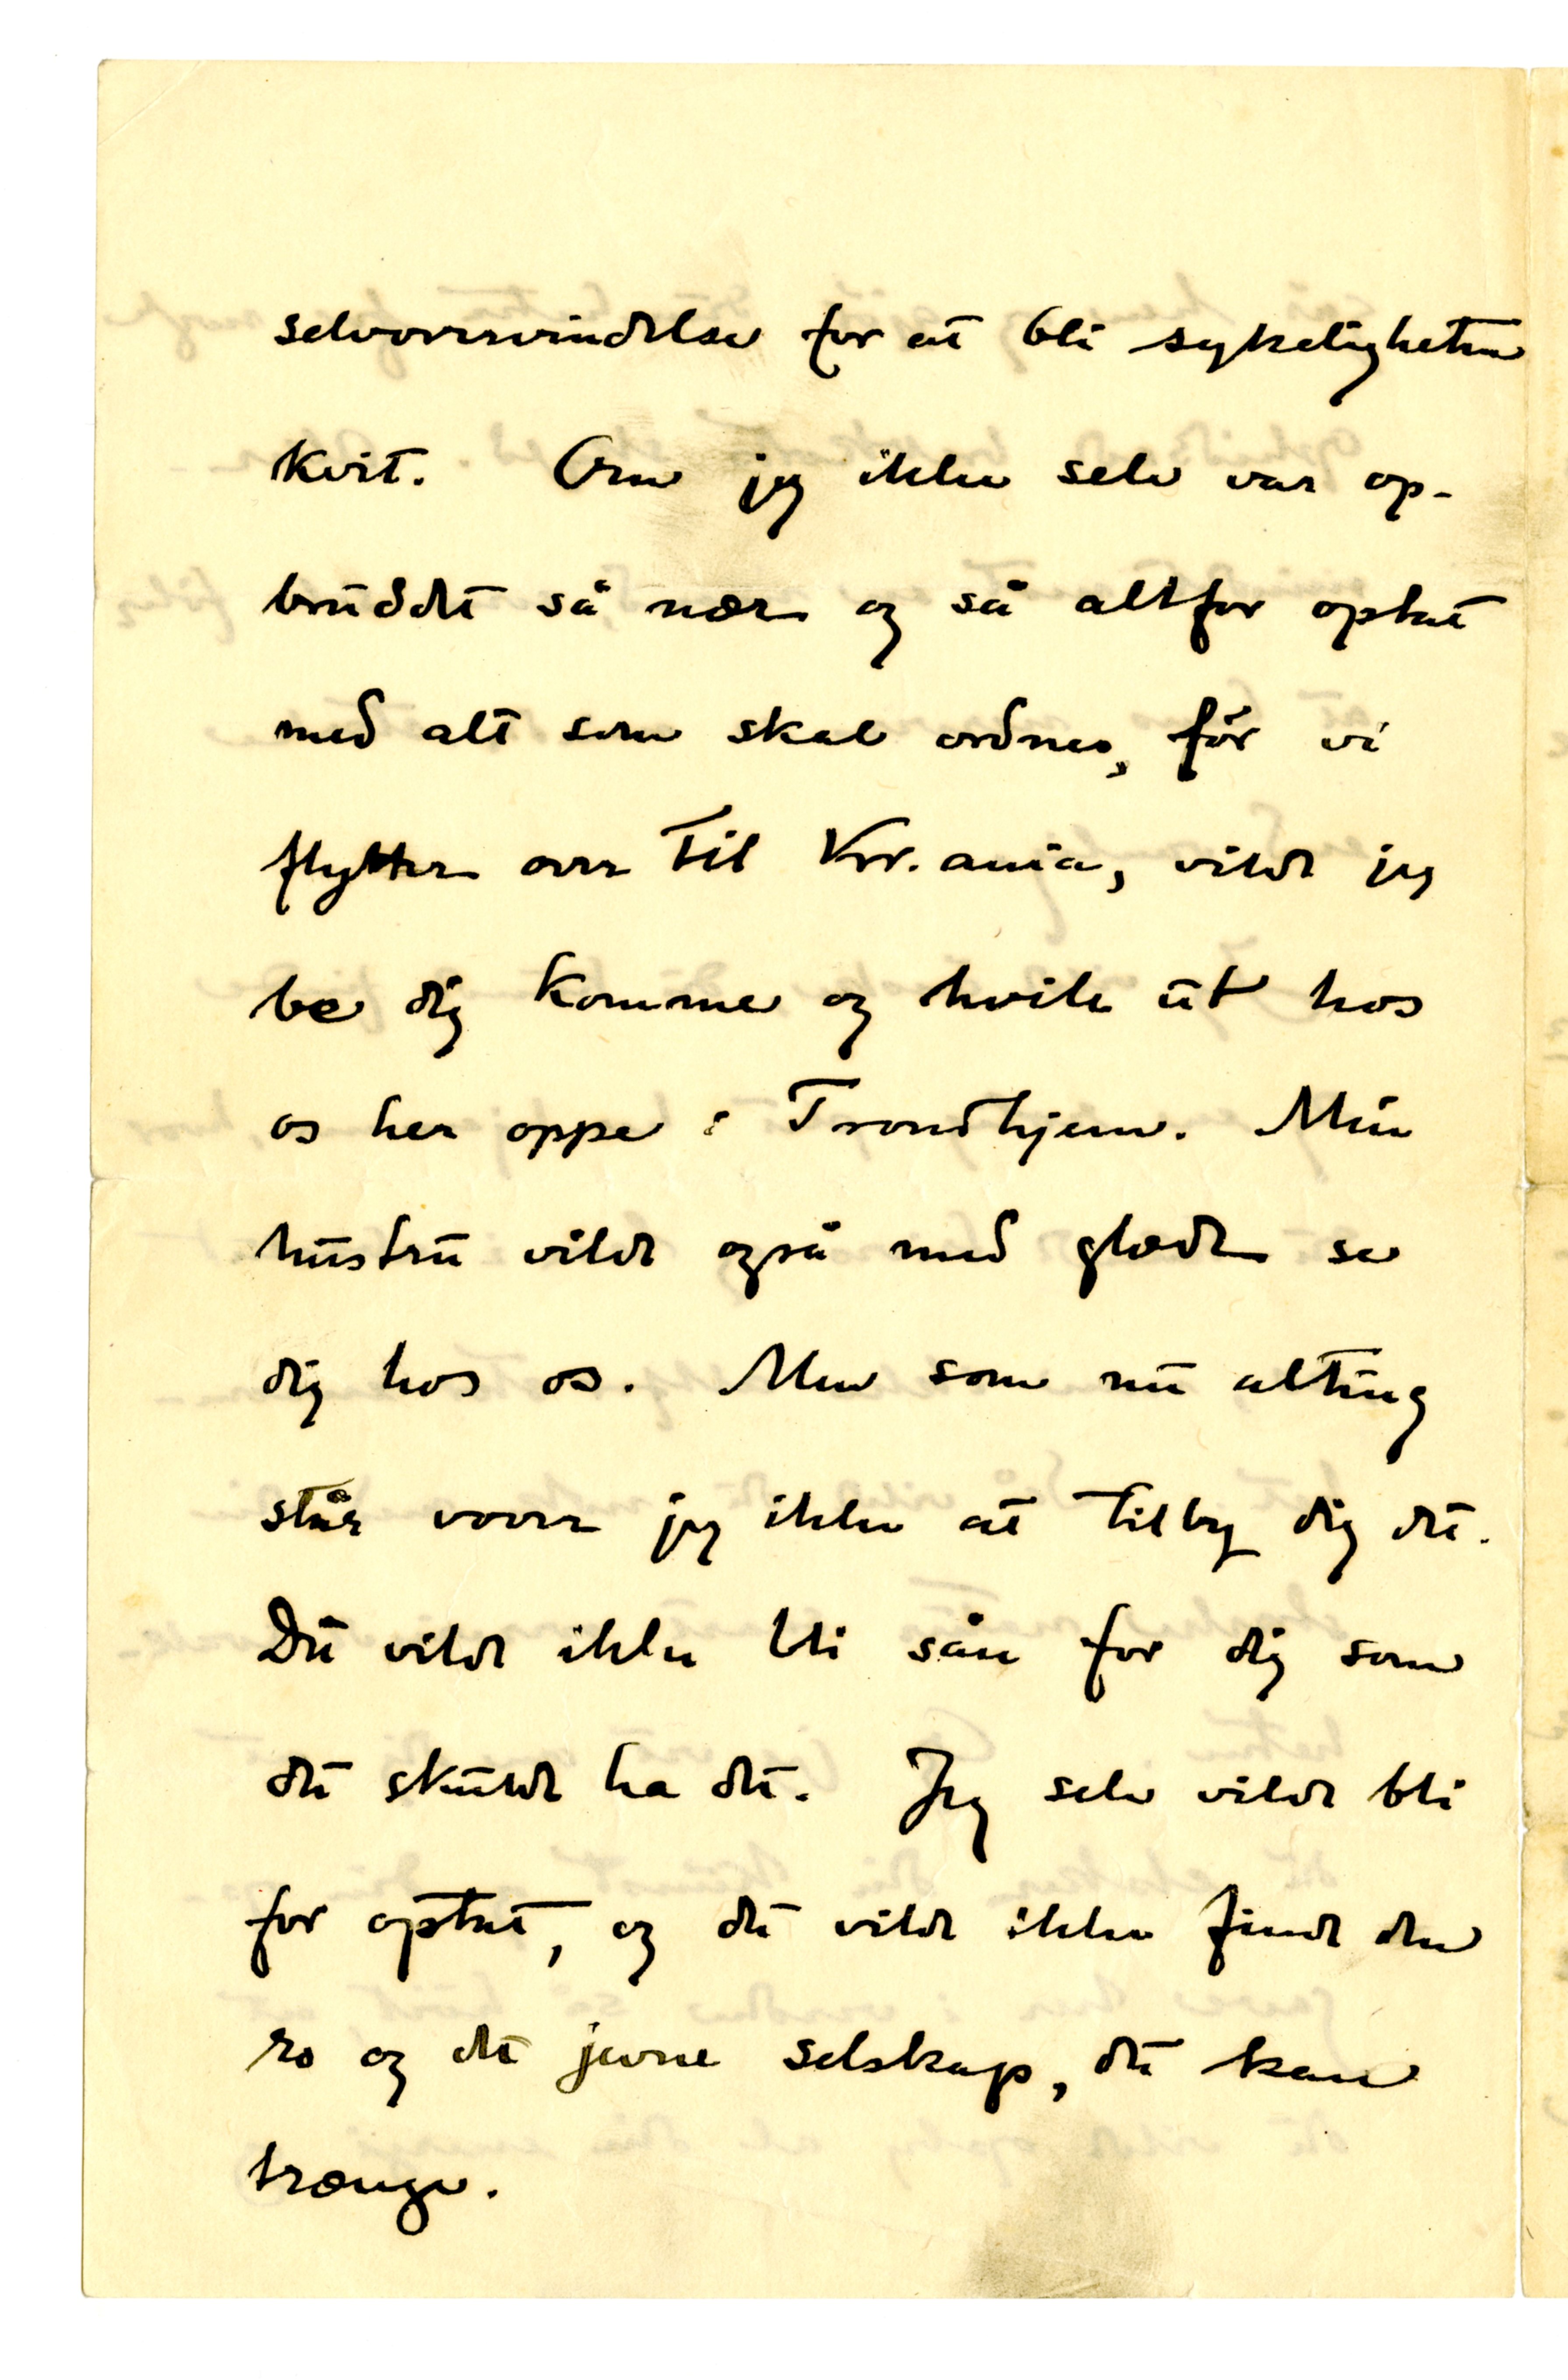 selvovervindelse for at bli sykeligheten
kvit. Om jeg ikke selv var op-
bruddet så nær og så altfor optat
med alt som skal ordnes, før vi
flytter over til Kr.ania, vilde jeg
be dig komme og hvile ut hos
os her oppe i Trondhjem. Min
hustru vilde også med glæde se
dig hos os. Men som nu alting
står vover jeg ikke at tilby dig det.
Det vilde ikke bli sån for dig som
du skulde ha det. Jeg selv vilde bli
for optat, og du vilde ikke finde den
ro og det jevne selskap, du kan
trænge.